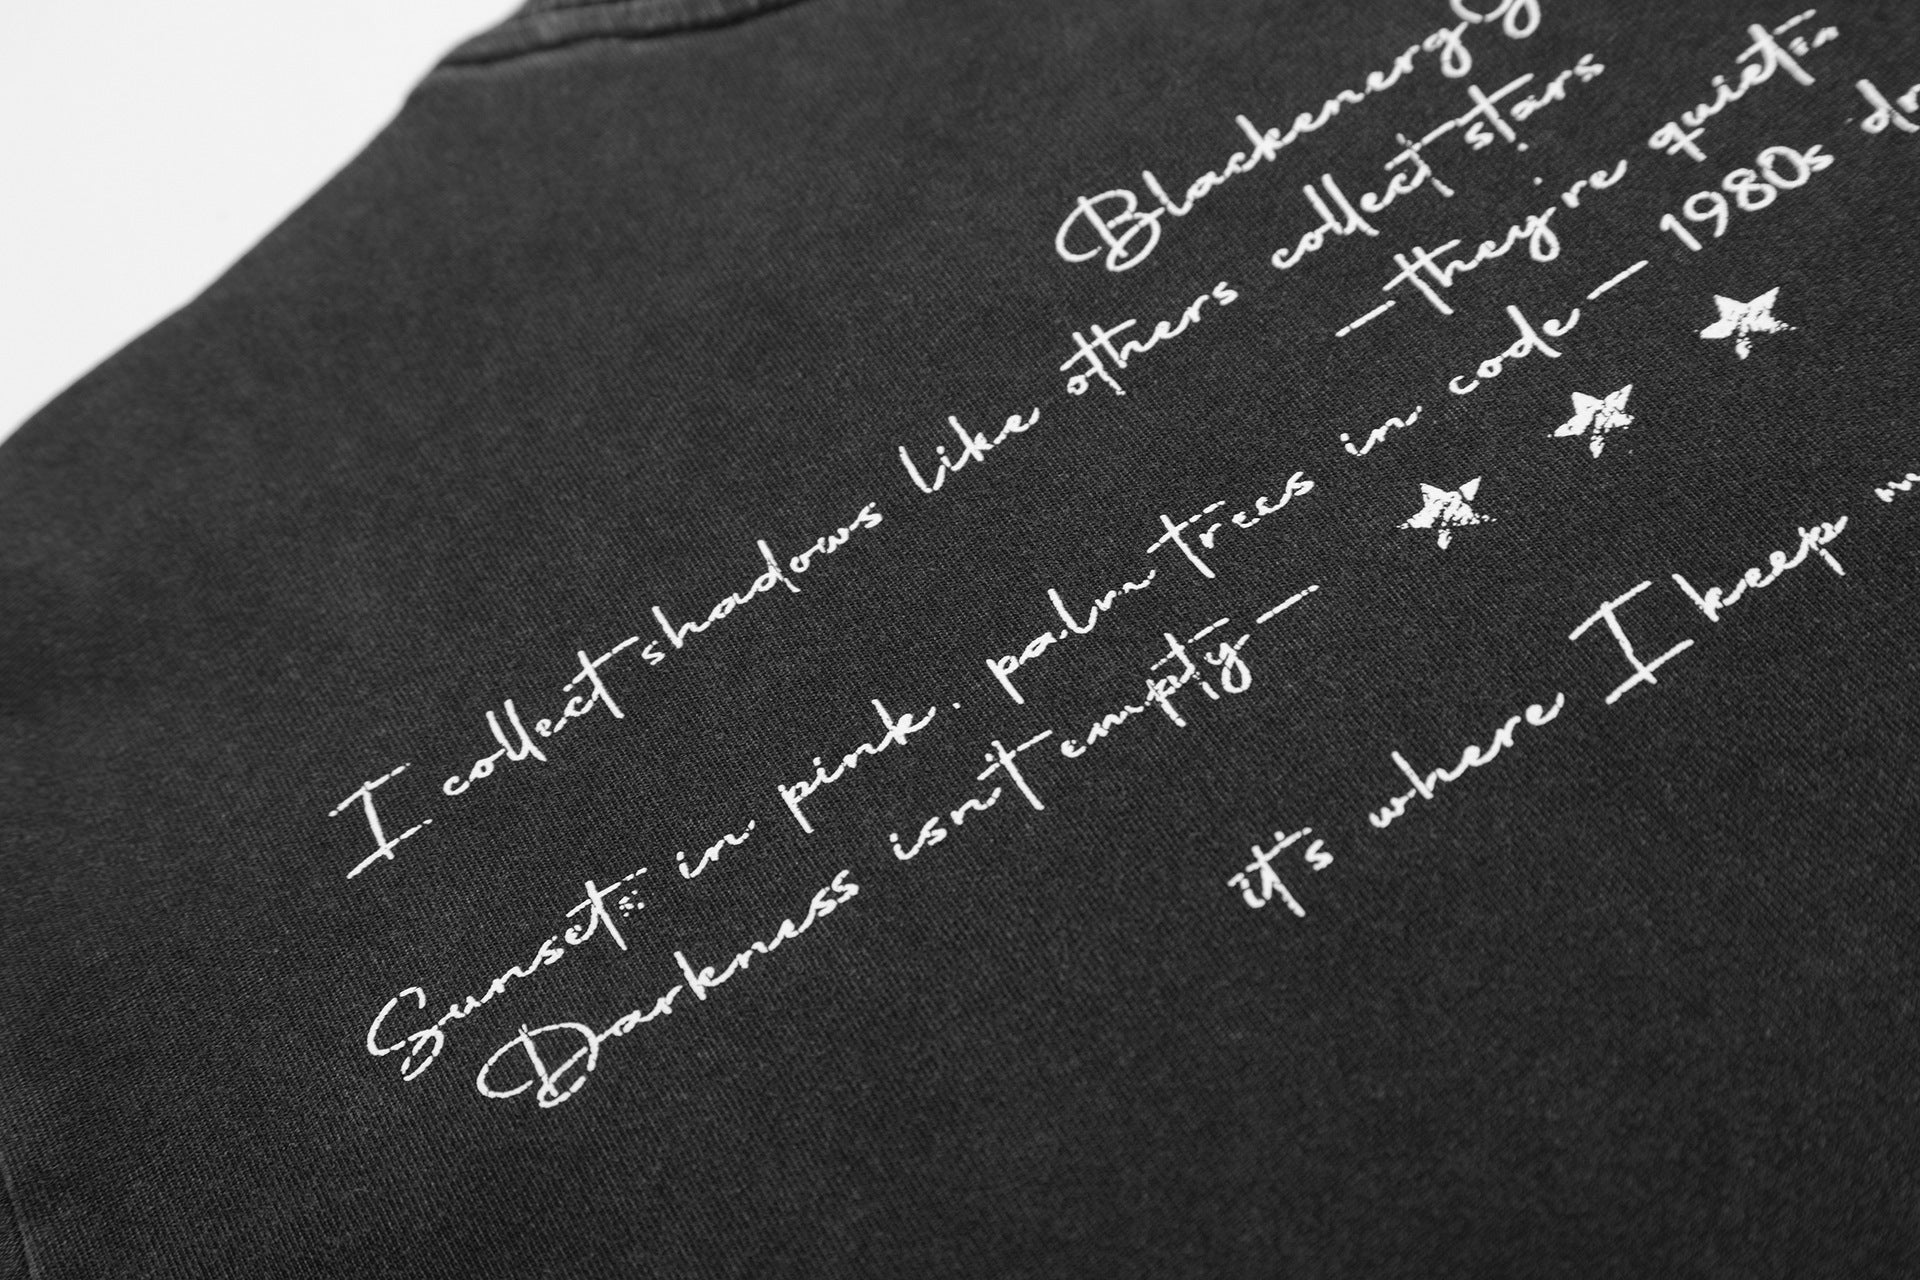 Blackenerg
I collect shadows like others collect stars
—they're
Sunsets in pink. palm trees in code — 1980s
Darkness isn't empty —
it's where I keep